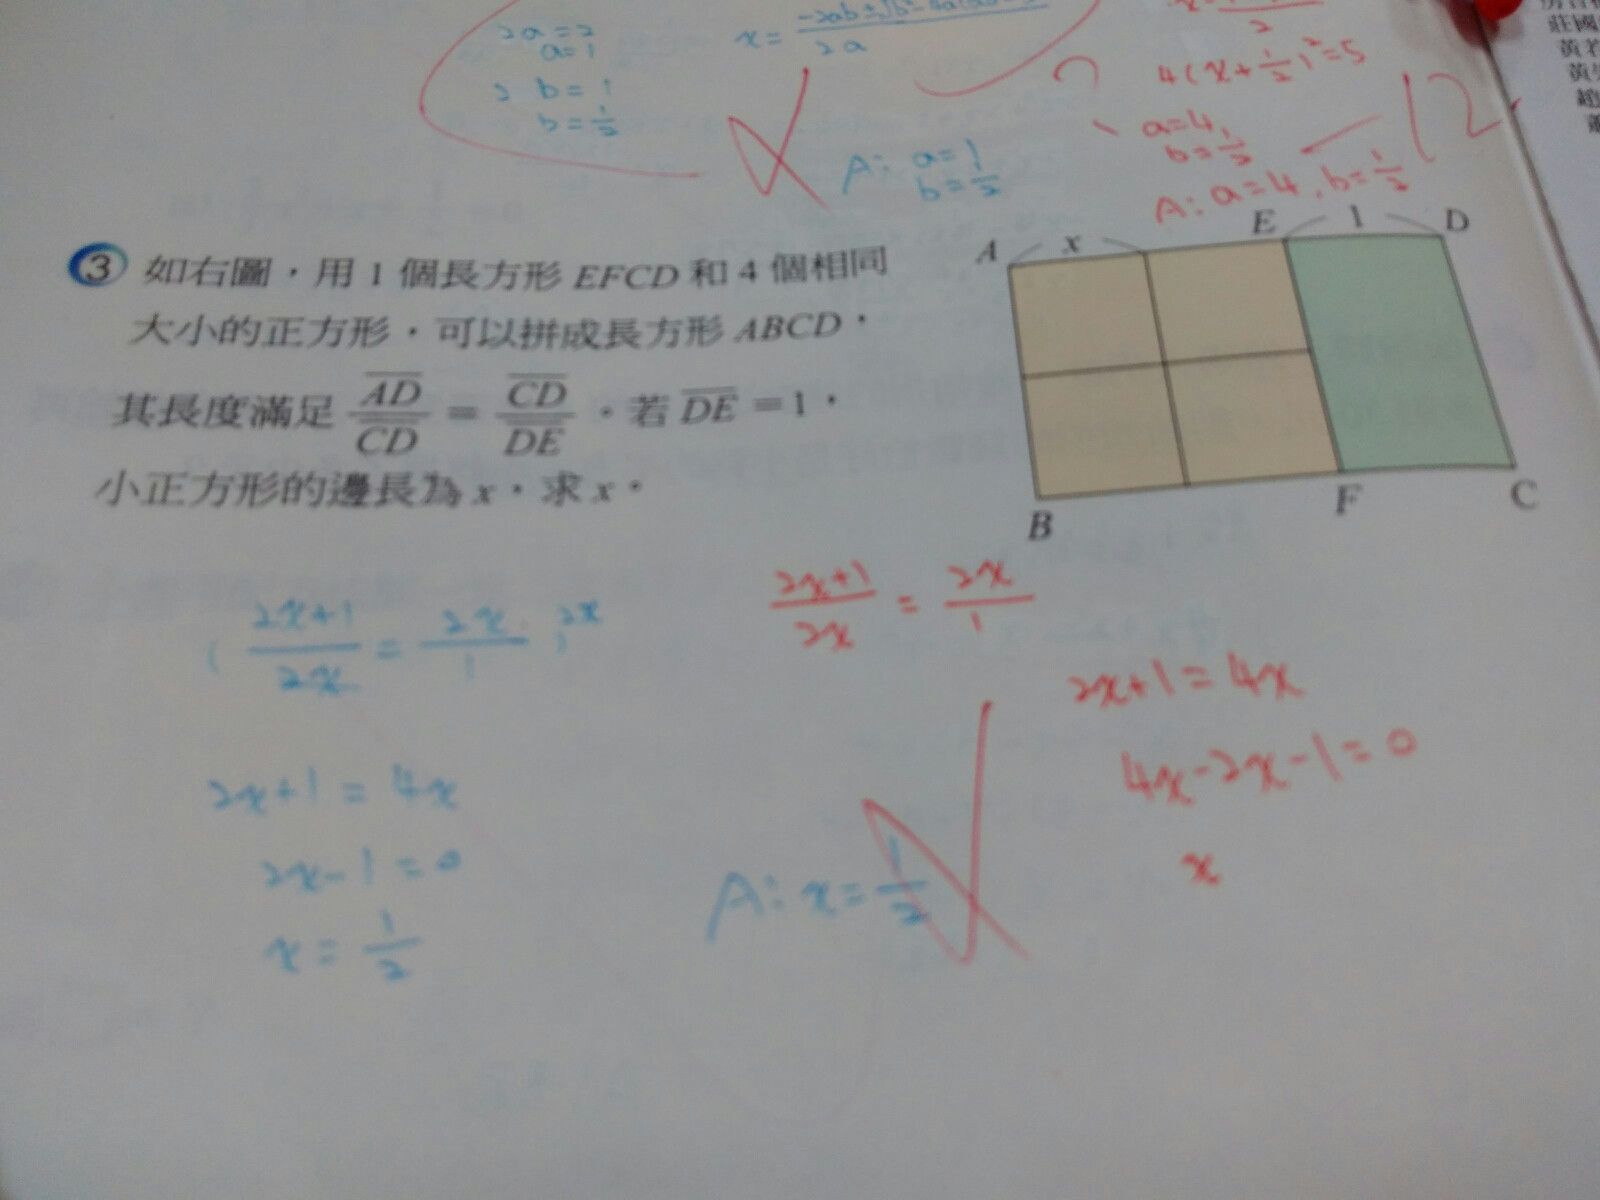 2a=2
a=1
2 b=1
b=1/2
2a
A: a=1
b=1/2
2
4(x+1/2)²=5
a=4
b=1/2
A: a=4, b=1/2
-12
莊國
③ 如右圖，用 1 個長方形 EFCD 和 4 個相同
大小的正方形，可以拼成長方形 ABCD，
其長度滿足 AD/CD = CD/DE。若 DE =1，
小正方形的邊長為 x，求 x。
A x E 1 D
B F C
(2x+1)/2x = 2x/1
2x+1=4x
2x-1=0
x=1/2
A: x=1/2
(2x+1)/2x = 2x/1
2x+1=4x
4x-2x-1=0
x